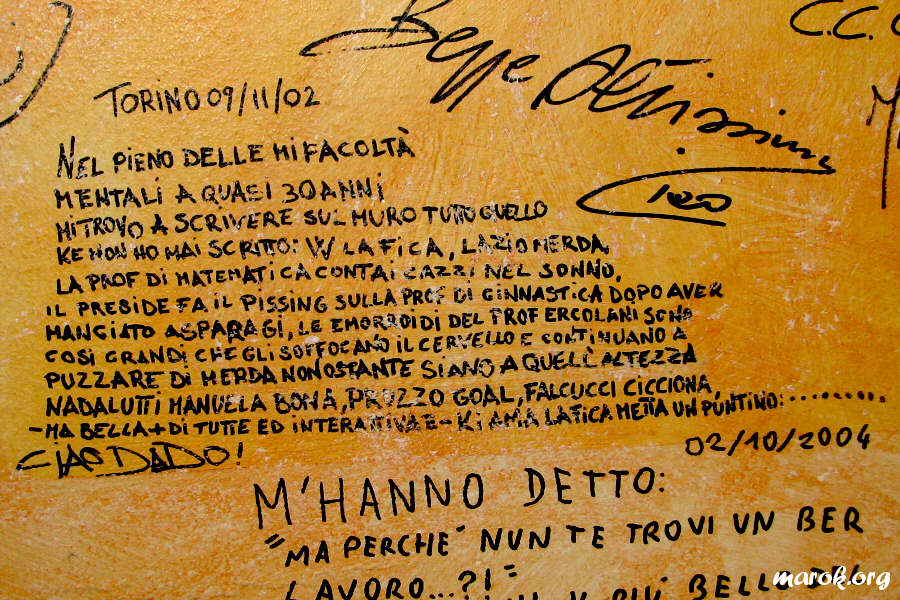 Beppe Altissimi
C.C.
TORINO 09/11/02
NEL PIENO DELLE MI FACOLTÀ
MENTALI A QUASI 30 ANNI
MI TROVO A SCRIVERE SUL MURO TUTTO QUELLO
KE NON HO MAI SCRITTO: W LA FICA, LAZIO MERDA
LA PROF DI MATEMATICA CONTA I CAZZI NEL SONNO,
IL PRESIDE FA IL PISSING SULLA PROF DI GINNASTICA DOPO AVER
MANGIATO ASPARAGI, LE EMORROIDI DEL PROF ERCOLANI SONO
COSÌ GRANDI CHE GLI SOFFOCANO IL CERVELLO E CONTINUANO A
PUZZARE DI MERDA NONOSTANTE SIANO A QUELL'ALTEZZA
NADALUTTI MANUELA BONA, PRUZZO GOAL, FALCUCCI CICCIONA,
-MA BELLA + DI TUTTE ED INTERATTIVA E- KI AMA LA FICA METTA UN PUNTINO:..........
CIAO DADO!
02/10/2004
M'HANNO DETTO:
"MA PERCHE' NUN TE TROVI UN BER
LAVORO...?!"
PIÙ BELLO DEL
marok.org